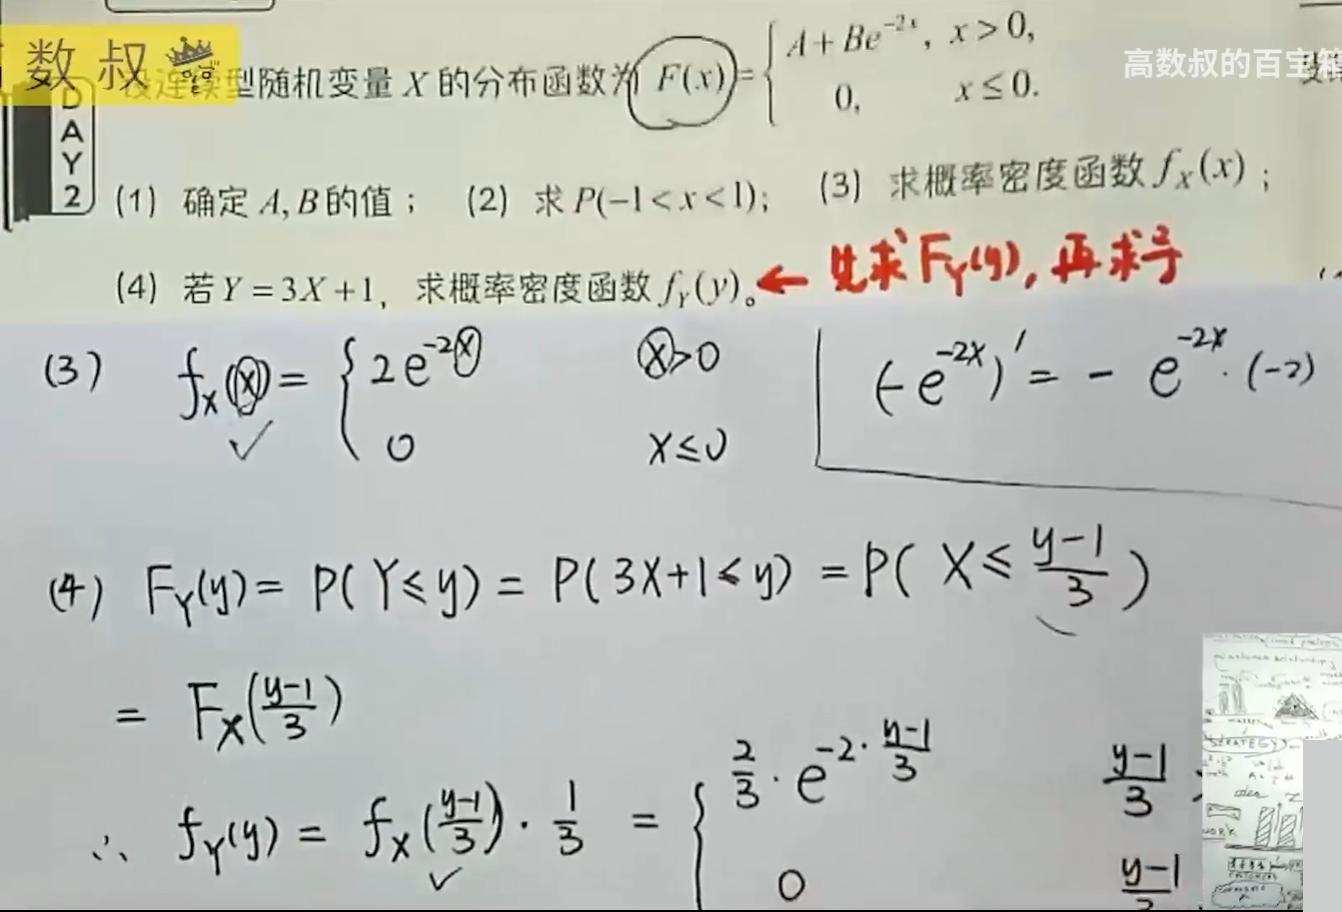 数叔
高数叔的百宝箱
DAY2
设连续型随机变量 X 的分布函数为 F(x) = { A + Be^{-2x}, x > 0,
0, x ≤ 0.
(1) 确定 A, B 的值； (2) 求 P(-1 < x < 1); (3) 求概率密度函数 f_X(x)；
(4) 若 Y = 3X + 1, 求概率密度函数 f_Y(y)。 ← 先求 F_Y(y), 再求导
(3) f_X(x) = { 2e^{-2x} x>0
0 x≤0
(-e^{-2x})' = - e^{-2x} · (-2)
(4) F_Y(y) = P(Y ≤ y) = P(3X+1 ≤ y) = P(X ≤ \frac{y-1}{3})
= F_X(\frac{y-1}{3})
∴ f_Y(y) = f_X(\frac{y-1}{3}) · \frac{1}{3} = { \frac{2}{3} · e^{-2 · \frac{y-1}{3}} \frac{y-1}{3}
0 \frac{y-1}{3}
STRATEGY